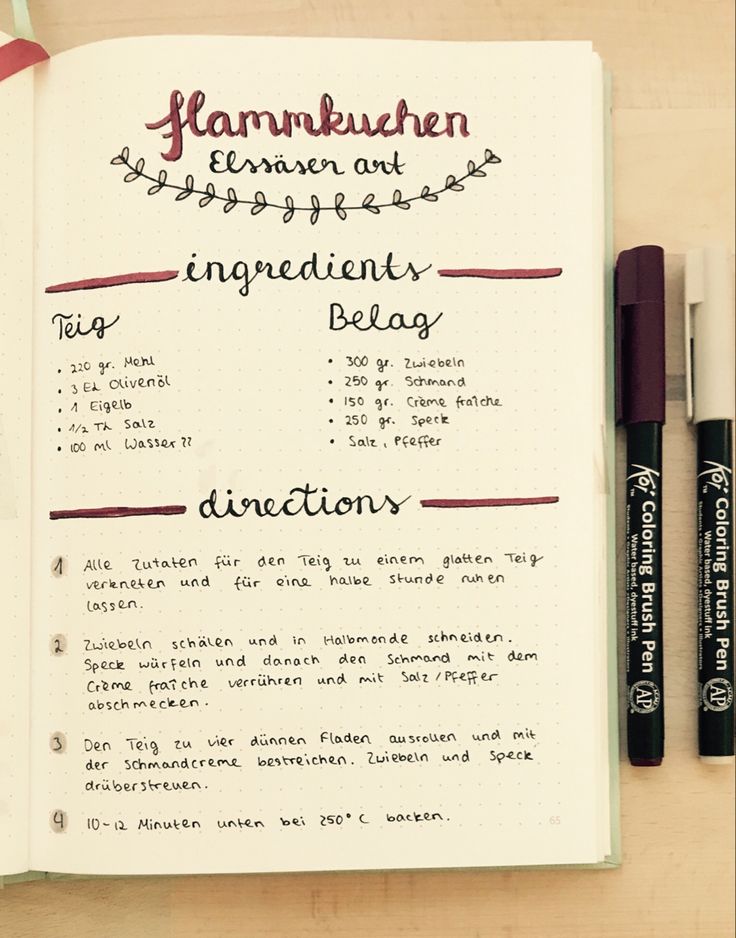 flammkuchen
Elssäser art
ingredients
Teig
• 220 gr. Mehl
• 3 EL Olivenöl
• 1 Eigelb
• 1/2 TL Salz
• 100 ml Wasser??
Belag
• 300 gr. Zwiebeln
• 250 gr. Schmand
• 150 gr. Crème fraîche
• 250 gr. Speck
• Salz, Pfeffer
directions
1 Alle Zutaten für den Teig zu einem glatten Teig
verkneten und für eine halbe Stunde ruhen
lassen.
2 Zwiebeln schälen und in Halbmonde schneiden.
Speck würfeln und danach den Schmand mit dem
Crème fraîche verrühren und mit Salz/Pfeffer
abschmecken.
3 Den Teig zu vier dünnen Fladen ausrollen und mit
der Schmandcreme bestreichen. Zwiebeln und Speck
drüberstreuen.
4 10-12 Minuten unten bei 250°C backen.
65
Koi Coloring Brush Pen
TM
Water based, dyestuff ink
AP
Koi Coloring Brush Pen
TM
Water based, dyestuff ink
AP